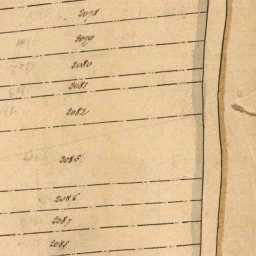 2078
2079
2080
2081
2082
2085
2086
2087
2088